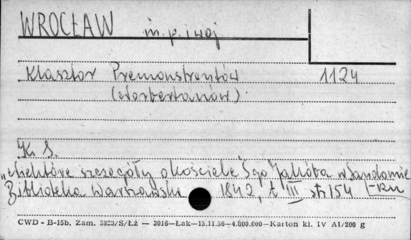 WROCŁAW m. p. i woj
Klasztor Premonstrantów 1124
(Norbertanów)
K. S.
"Niektóre szczegóły o kościele Śgo Jakóba w Sandomierzu
Biblioteka Warszawska 1842, t III str 154
CWD - B-15b, Zam. 5823/S/ŁŻ — 3016—Łak—15.11.56—4.000.000—Karton kl. IV A1/200 g